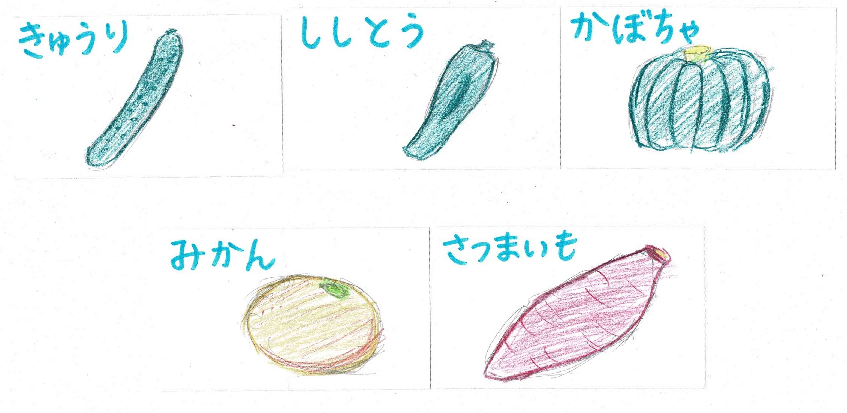 きゅうり
ししとう
かぼちゃ
みかん
さつまいも